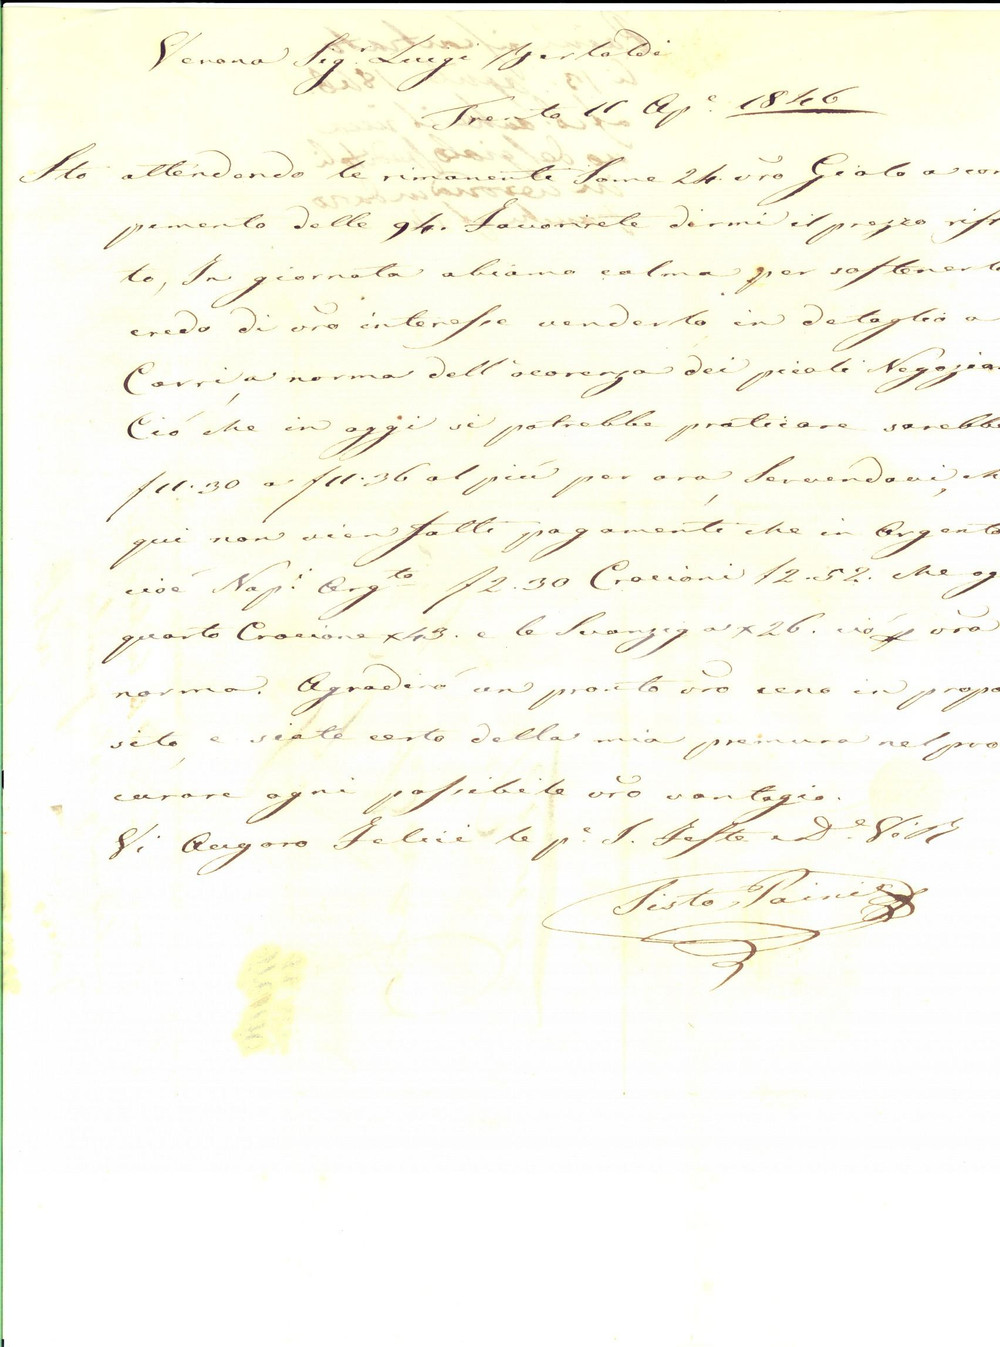 Verona Sig.r Luigi Bertoldi
Trento 11 Ap.e 1846
Sto attendendo le rimanenti Some 24. vro Gialo a com
pimento delle 94. Favorirete dirmi il prezzo ristr
to, In giornata abiamo calma per sostenerlo
credo di vro interesse venderlo in detaglio a
Carri, a norma dell'ocorenza dei picoli Negozian
Ció che in oggi si potrebbe praticare sarebbe
f 11.30 a f 11.36 al piú per ora, Servendovi, che
qui non vien fatti pagamenti che in Argento
cioé Nap.i Arg.to f 2.30 Crocioni f 2.52. che og
quarto Crocione x 43. e le Svanzig a x 26. ció p vra
norma. Agradiró un pronto vro ceno in propo
sito, e siate certo della mia premura nel pro
curare ogni possibile vro vantagio.
Vi Auguro Felici le p.e S. Feste e
Sisto Paini